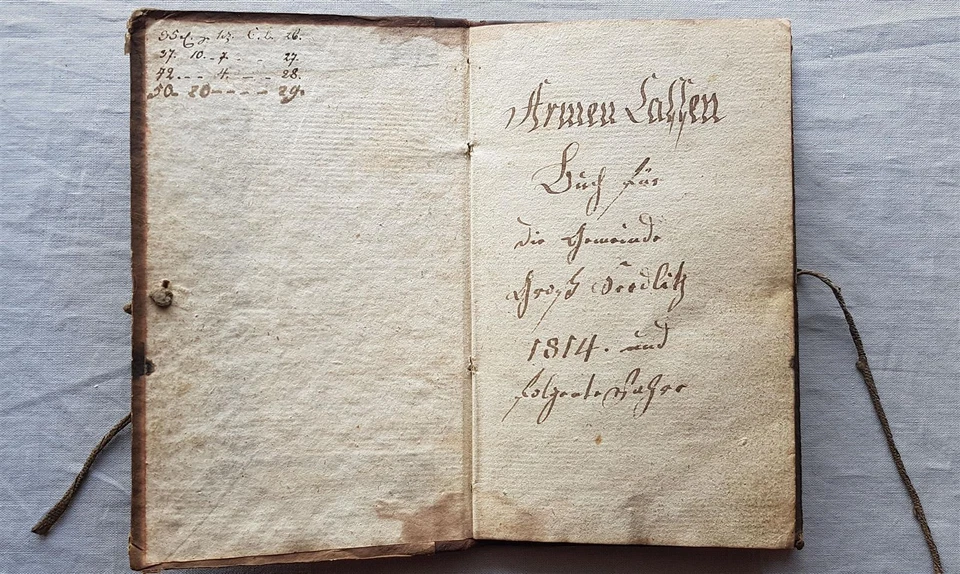 37. 10. 7. - - 27.
42. - - 4. - - 28.
50. 20 - - - - 29.
Armen Cassen
Buch für
die Gemeinde
Groß Seedlitz
1814. und
folgente Jahre